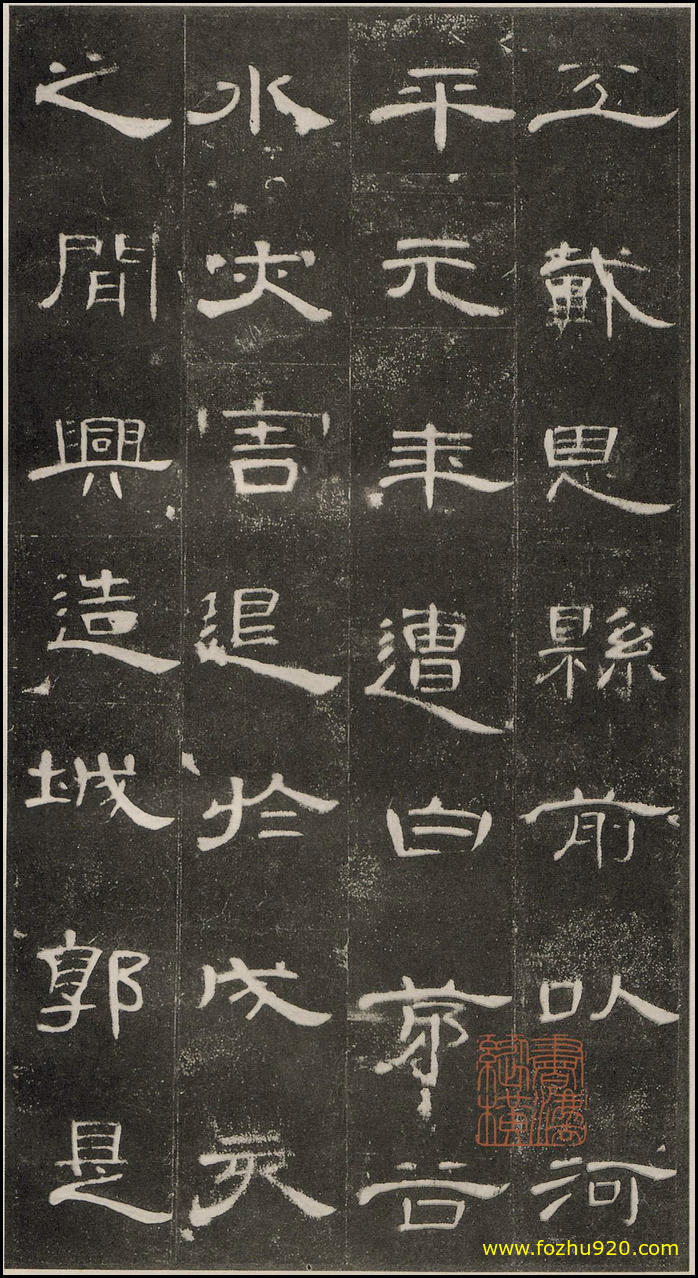 㳟載思縣前以河
平元年遭白茅谷
水灾害退於戍亥
之間興造城郭是
書灋縱橫
www.fozhu920.com